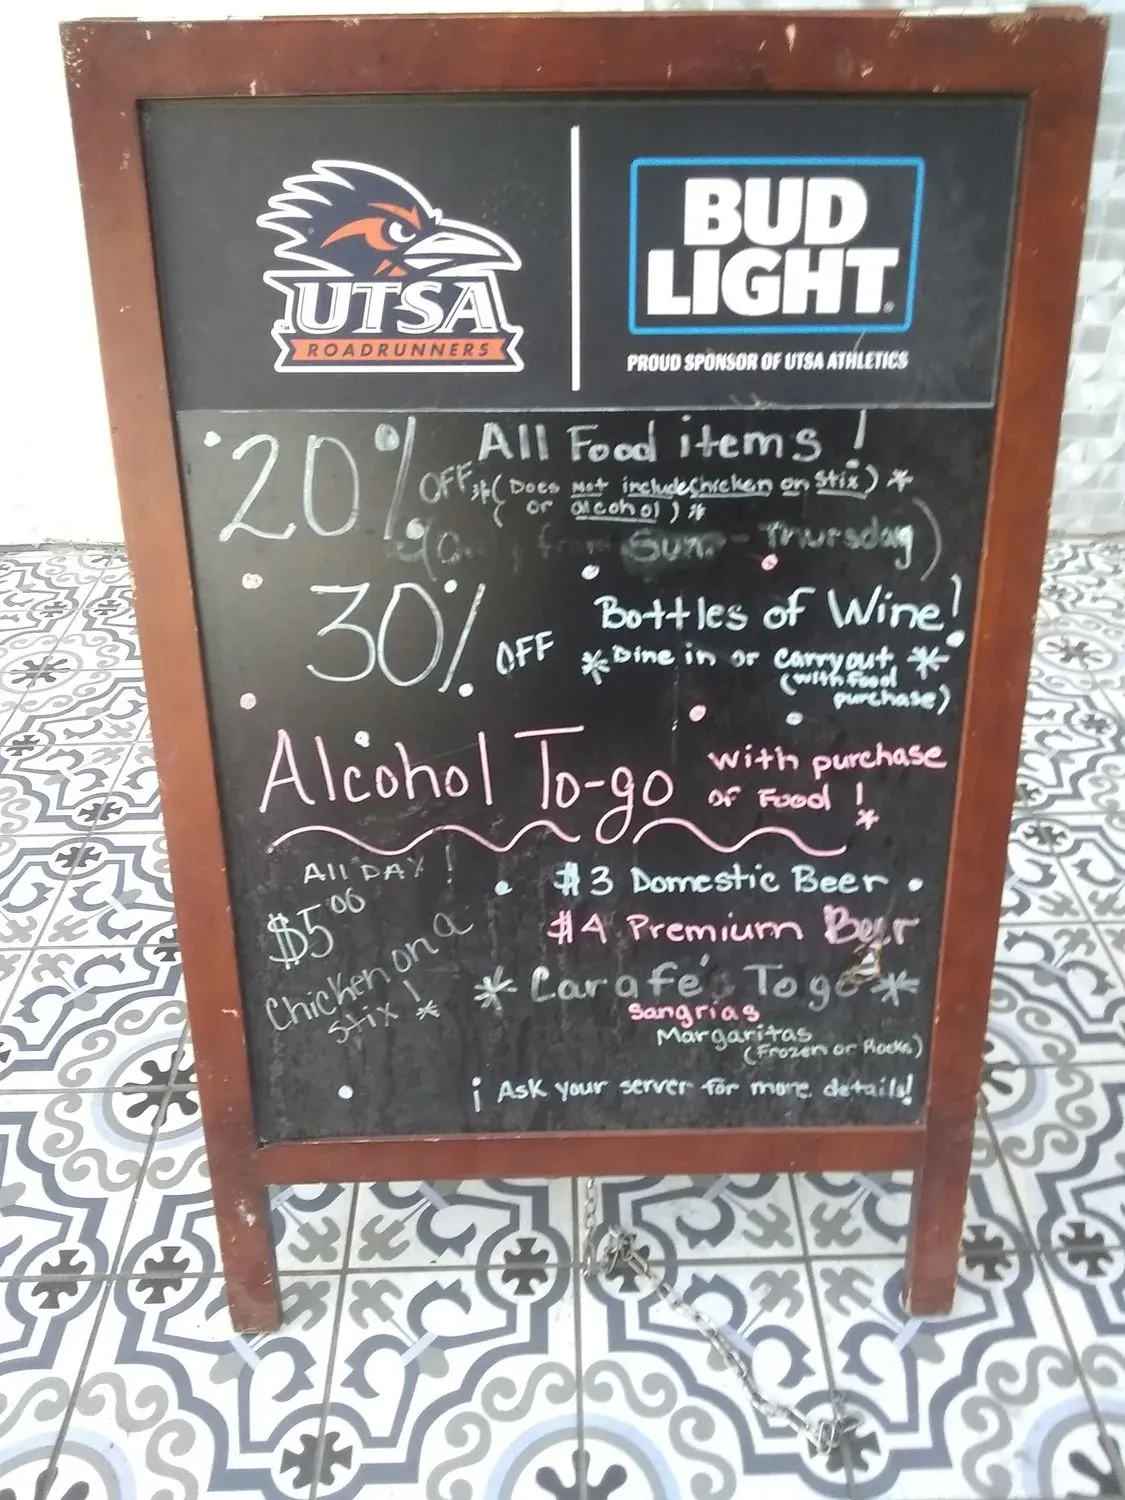 UTSA
ROADRUNNERS
BUD
LIGHT
PROUD SPONSOR OF UTSA ATHLETICS
20% OFF All Food items!
*(Does Not include Chicken on Stix)*
or alcohol)*
from Sun. - Thursday)
30% OFF Bottles of Wine!
*Dine in or Carryout*
(with Food
purchase)
Alcohol To-go with purchase
of Food!*
All DAY!
$5.00
Chicken on a
Stix! *
$3 Domestic Beer
$4 Premium Beer
*Carafe's To go*
Sangrias
Margaritas
(Frozen or Rocks)
¡Ask your server for more details!